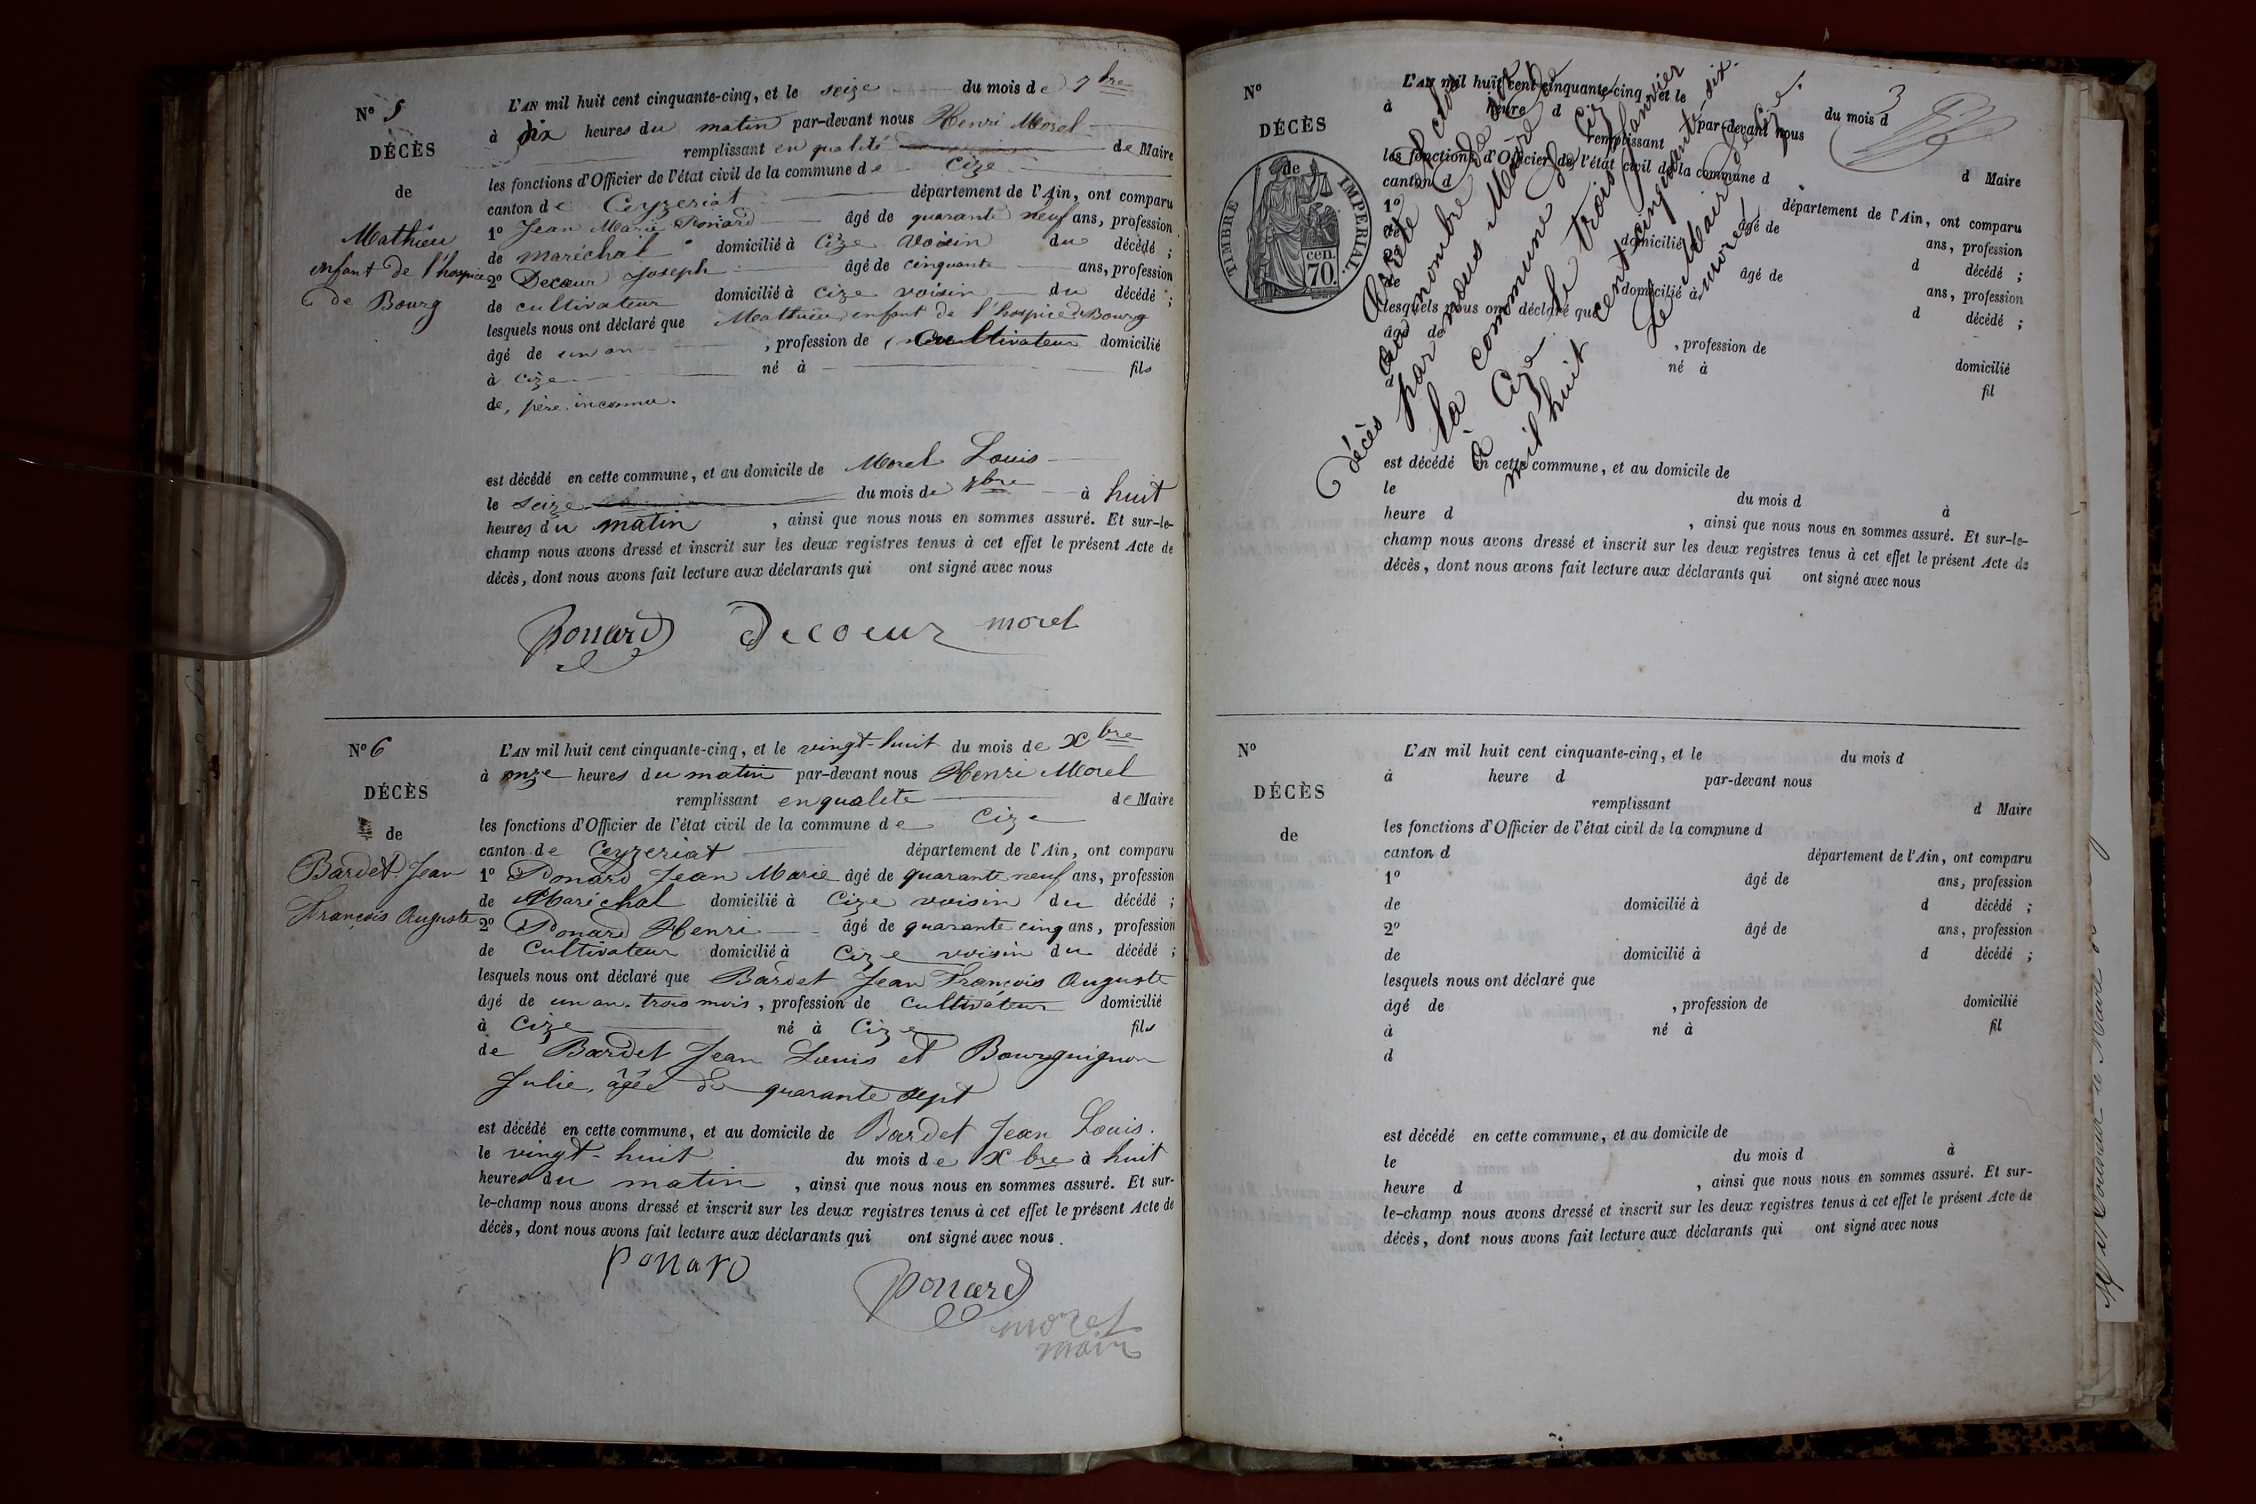 N° 5
DÉCÈS
de
Mathieu
enfant de l'hospice
de Bourg
L'AN mil huit cent cinquante-cinq, et le seize du mois de
à dix heures du matin par-devant nous Henri Morel
remplissant en qualité de Maire
les fonctions d'Officier de l'état civil de la commune de Cize
canton de Ceyzeriat département de l'Ain, ont comparu
1° Jean Marie Ponard âgé de quarante neuf ans, profession
de maréchal domicilié à Cize voisin du décédé ;
2° Decoeur Joseph âgé de cinquante ans, profession
de cultivateur domicilié à Cize voisin du décédé ;
lesquels nous ont déclaré que Mathieu enfant de l'hospice de Bourg
âgé de un an , profession de cultivateur domicilié
à Cize né à fils
de, père inconnu.
est décédé en cette commune, et au domicile de Morel Louis
le seize du mois de à huit
heures du matin , ainsi que nous nous en sommes assuré. Et sur-le-
champ nous avons dressé et inscrit sur les deux registres tenus à cet effet le présent Acte de
décès, dont nous avons fait lecture aux déclarants qui ont signé avec nous
ponard Decoeur morel
N° 6
DÉCÈS
de
Bardet Jean
François Auguste
L'AN mil huit cent cinquante-cinq, et le vingt-huit du mois de Xbre
à onze heures du matin par-devant nous Henri Morel
remplissant en qualete de Maire
les fonctions d'Officier de l'état civil de la commune de Cize
canton de Ceyzeriat département de l'Ain, ont comparu
1° Ponard Jean Marie âgé de quarante neuf ans, profession
de Maréchal domicilié à Cize voisin du décédé ;
2° Ponard Henri âgé de quarante cinq ans, profession
de Cultivateur domicilié à Cize voisin du décédé ;
lesquels nous ont déclaré que Bardet Jean François Auguste
âgé de un an. trois mois, profession de Cultivateur domicilié
à Cize né à Cize fils
de Bardet Jean Louis et Bourguignon
Julie, âgée de quarante sept
est décédé en cette commune, et au domicile de Bardet Jean Louis.
le vingt-huit du mois de Xbre à huit
heures du matin , ainsi que nous nous en sommes assuré. Et sur-
le-champ nous avons dressé et inscrit sur les deux registres tenus à cet effet le présent Acte de
décès, dont nous avons fait lecture aux déclarants qui ont signé avec nous.
ponard
ponard
morel
maire
N°
DÉCÈS
de
TIMBRE IMPERIAL.
cen.
70.
3
L'AN mil huit cent cinquante-cinq, et le du mois d
à heure d par-devant nous
remplissant d Maire
les fonctions d'Officier de l'état civil de la commune d
canton d département de l'Ain, ont comparu
1° âgé de ans, profession
de domicilié à d décédé ;
2° âgé de ans, profession
de domicilié à d décédé ;
lesquels nous ont déclaré que
âgé de , profession de domicilié
à né à fil
d
est décédé en cette commune, et au domicile de
le du mois d à
heure d , ainsi que nous nous en sommes assuré. Et sur-le-
champ nous avons dressé et inscrit sur les deux registres tenus à cet effet le présent Acte de
décès, dont nous avons fait lecture aux déclarants qui ont signé avec nous
Arreté et clos
au nombre de six
décès par nous Maire de
la commune de Cize
à Cize le trois Janvier
mil huit cent cinquante-six.
Le Maire de Cize.
morel
N°
DÉCÈS
de
L'AN mil huit cent cinquante-cinq, et le du mois d
à heure d par-devant nous
remplissant d Maire
les fonctions d'Officier de l'état civil de la commune d
canton d département de l'Ain, ont comparu
1° âgé de ans, profession
de domicilié à d décédé ;
2° âgé de ans, profession
de domicilié à d décédé ;
lesquels nous ont déclaré que
âgé de , profession de domicilié
à né à fil
d
est décédé en cette commune, et au domicile de
le du mois d à
heure d , ainsi que nous nous en sommes assuré. Et sur-
le-champ nous avons dressé et inscrit sur les deux registres tenus à cet effet le présent Acte de
décès, dont nous avons fait lecture aux déclarants qui ont signé avec nous